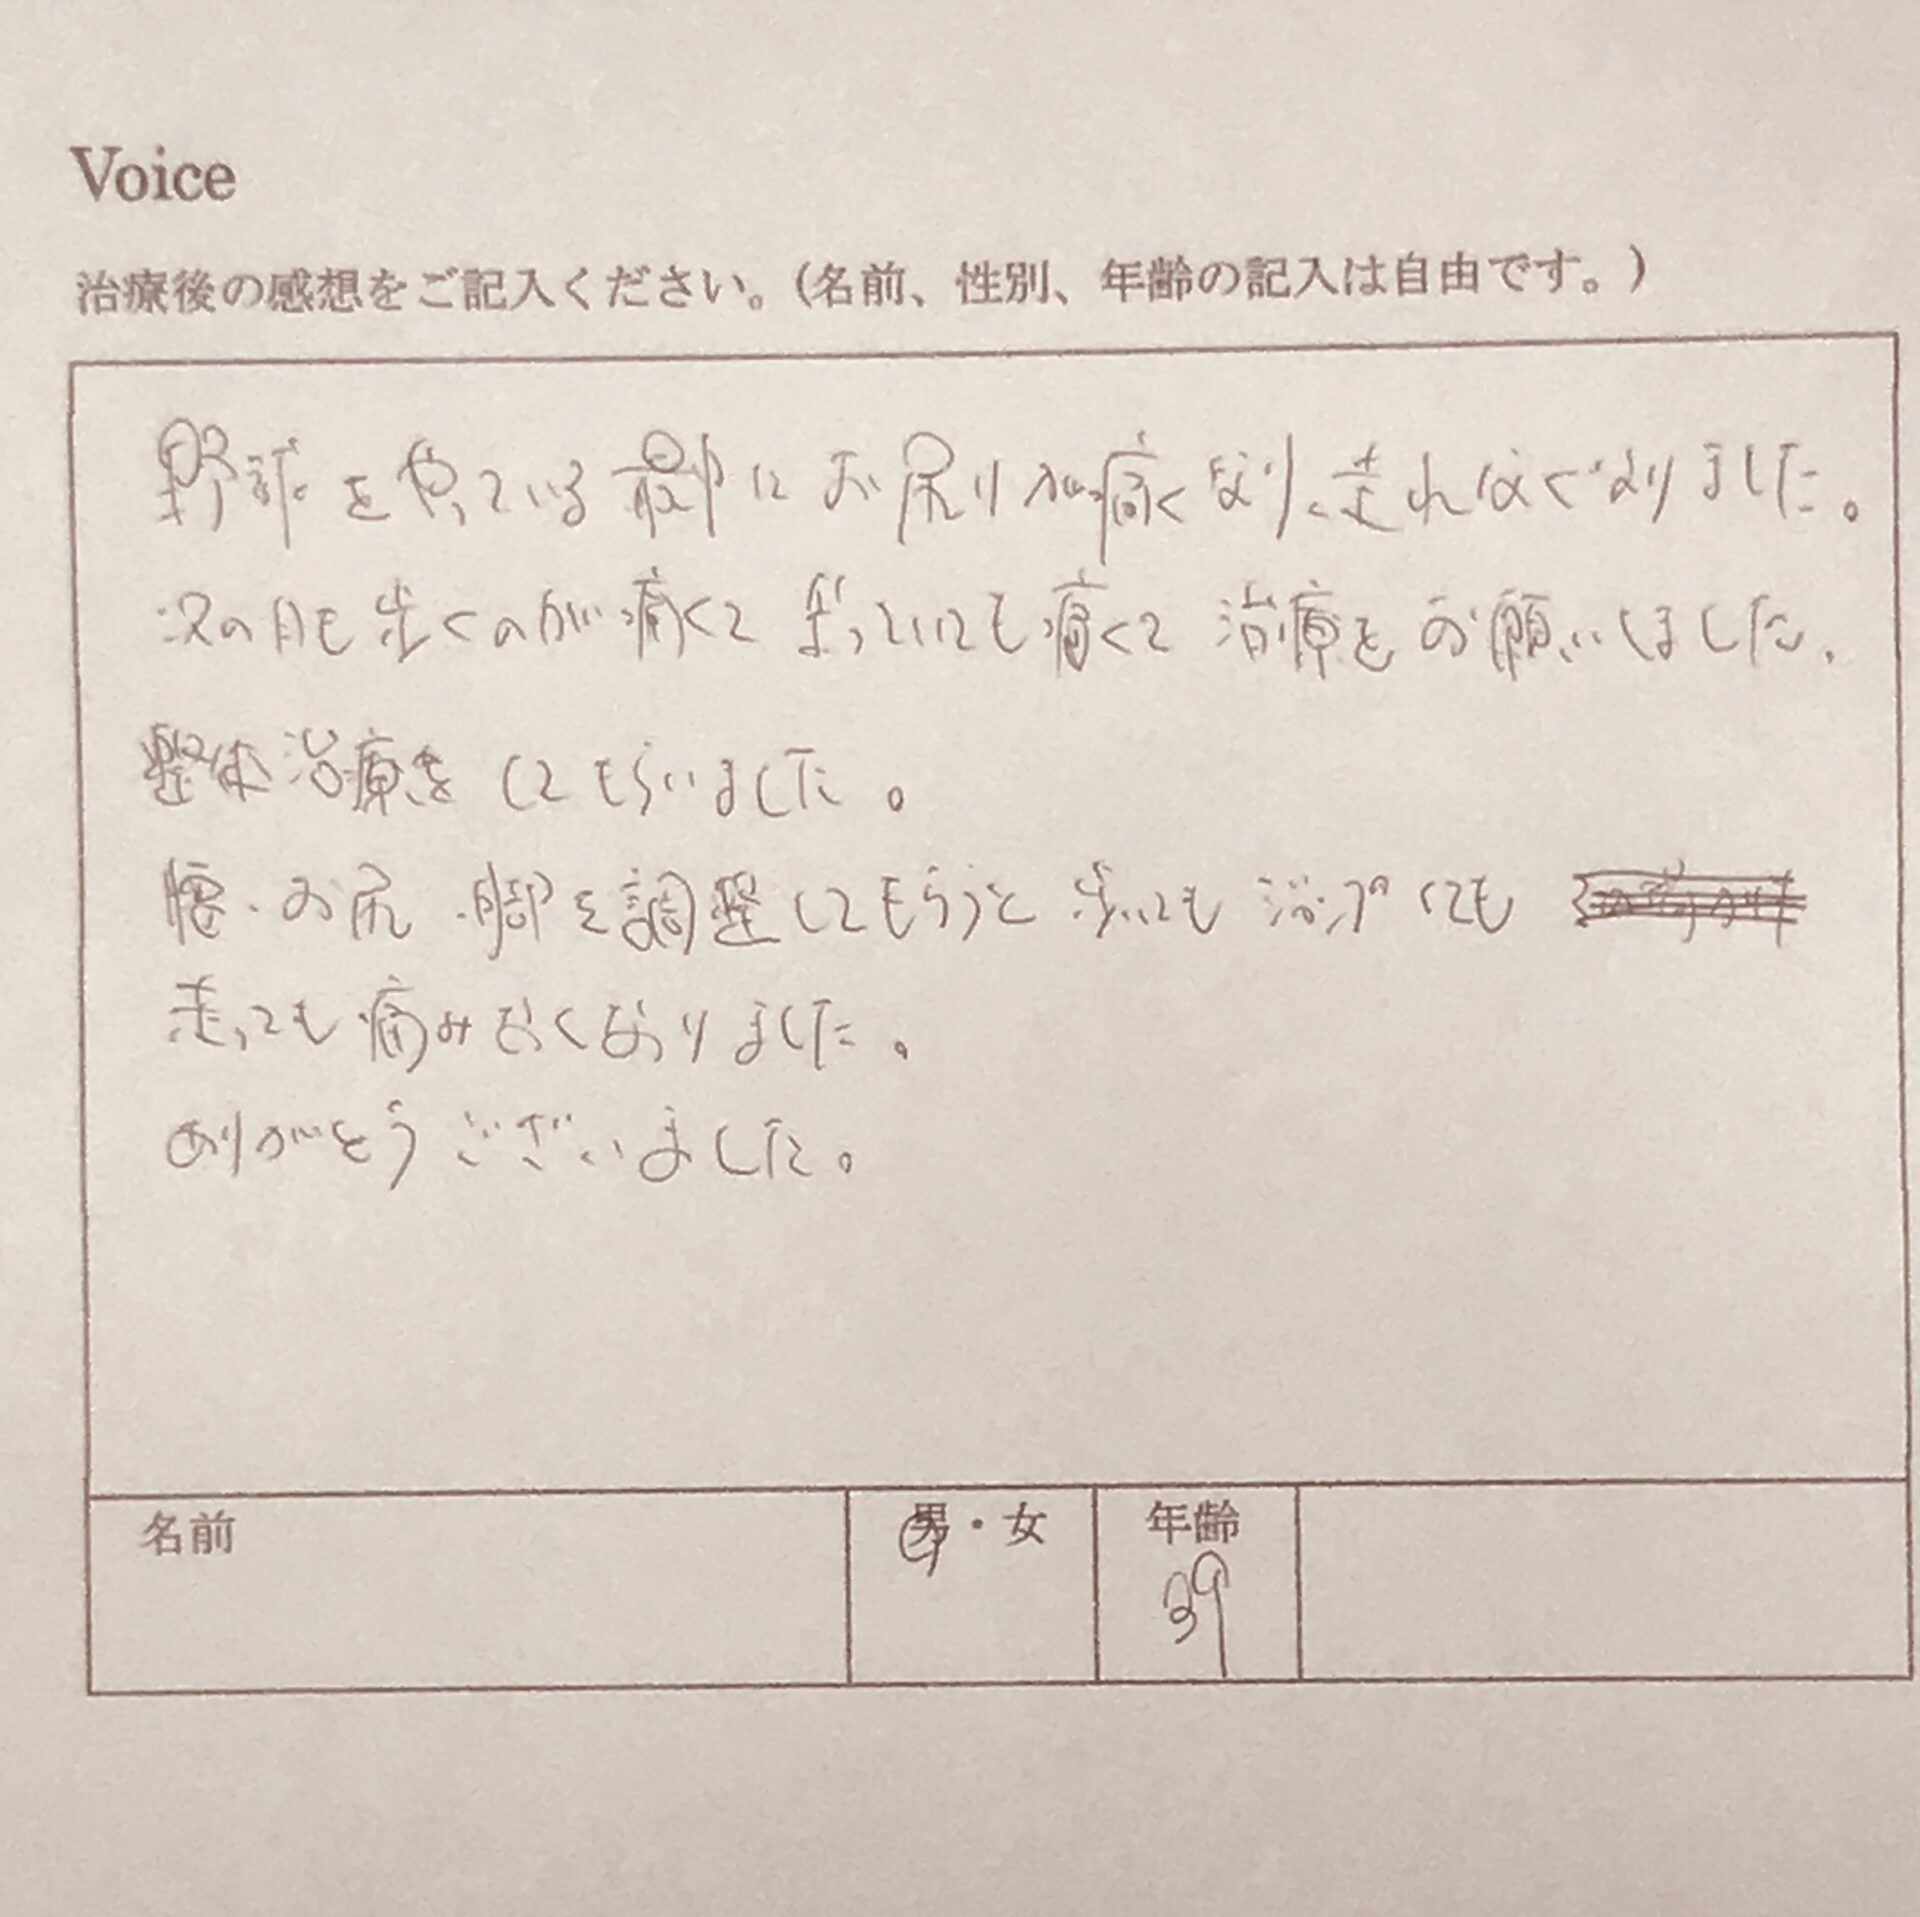 Voice
治療後の感想をご記入ください。(名前、性別、年齢の記入は自由です。)
野球をやっている最中にお尻りが痛くなり、走れなくなりました。
次の日も歩くのが痛くて 座っていても痛くて 治療をお願いしました。
整体治療をしてもらいました。
腰・お尻・脚を調整してもらうと 歩いても ジャンプしても
走っても痛みなくなりました。
ありがとうございました。
名前 男・女 年齢
39